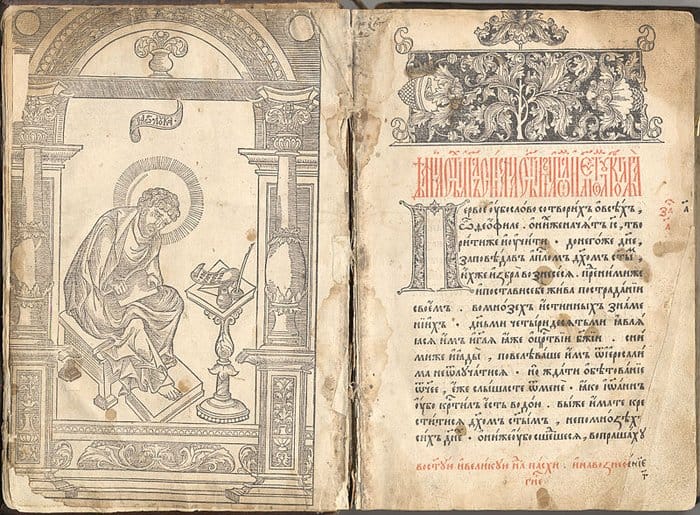 Первое ѹбо слово сотворихъ ѡ всѣхъ,
ѽ ѳеофиле. ѻ нихже начѧтъ іс҃, тво
рити же и ѹчити. донегоже дн҃е,
заповѣдавъ апⷭ҇лом дх҃ом ст҃ым,
ихже избра вознесесѧ. пред нимиже
и постави себе жива по страданїи
своемъ. во мнозех истинныхъ знаме
нїихъ. дн҃ьми четыридесѧтьми ꙗвлѧ
ꙗсѧ имъ и гл҃ѧ ꙗже ѡ црⷭ҇твїи бж҃їи. с ни
миже и ꙗды, повелѣваше имъ ѿ іерⷭ҇али
ма не ѿлꙋчатисѧ. но ждати ѡбѣтованїе
ѻч҃ее, еже слышасте ѿ мене. ꙗко іѡаннъ
ѹбо крⷭ҇тилъ есть водою. вы же имате кре
ститисѧ дх҃омъ ст҃ымъ, не по мноѕѣхъ
сихъ дн҃ехъ. ѻни же ѹбо сшедшесѧ, вопрашахꙋ
во ст҃ꙋю и великꙋю нⷣлю пасхи. и на вознесенїе
гⷭ҇не